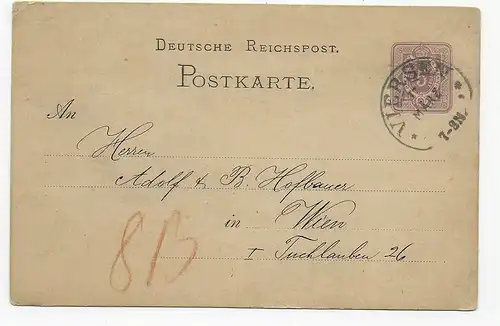 DEUTSCHE REICHSPOST.
POSTKARTE.
VIERSEN
MÄRZ
7-8N.
An
Herren
Adolf & B. Hofbauer
in Wien
I Tuchlauben 26
8B